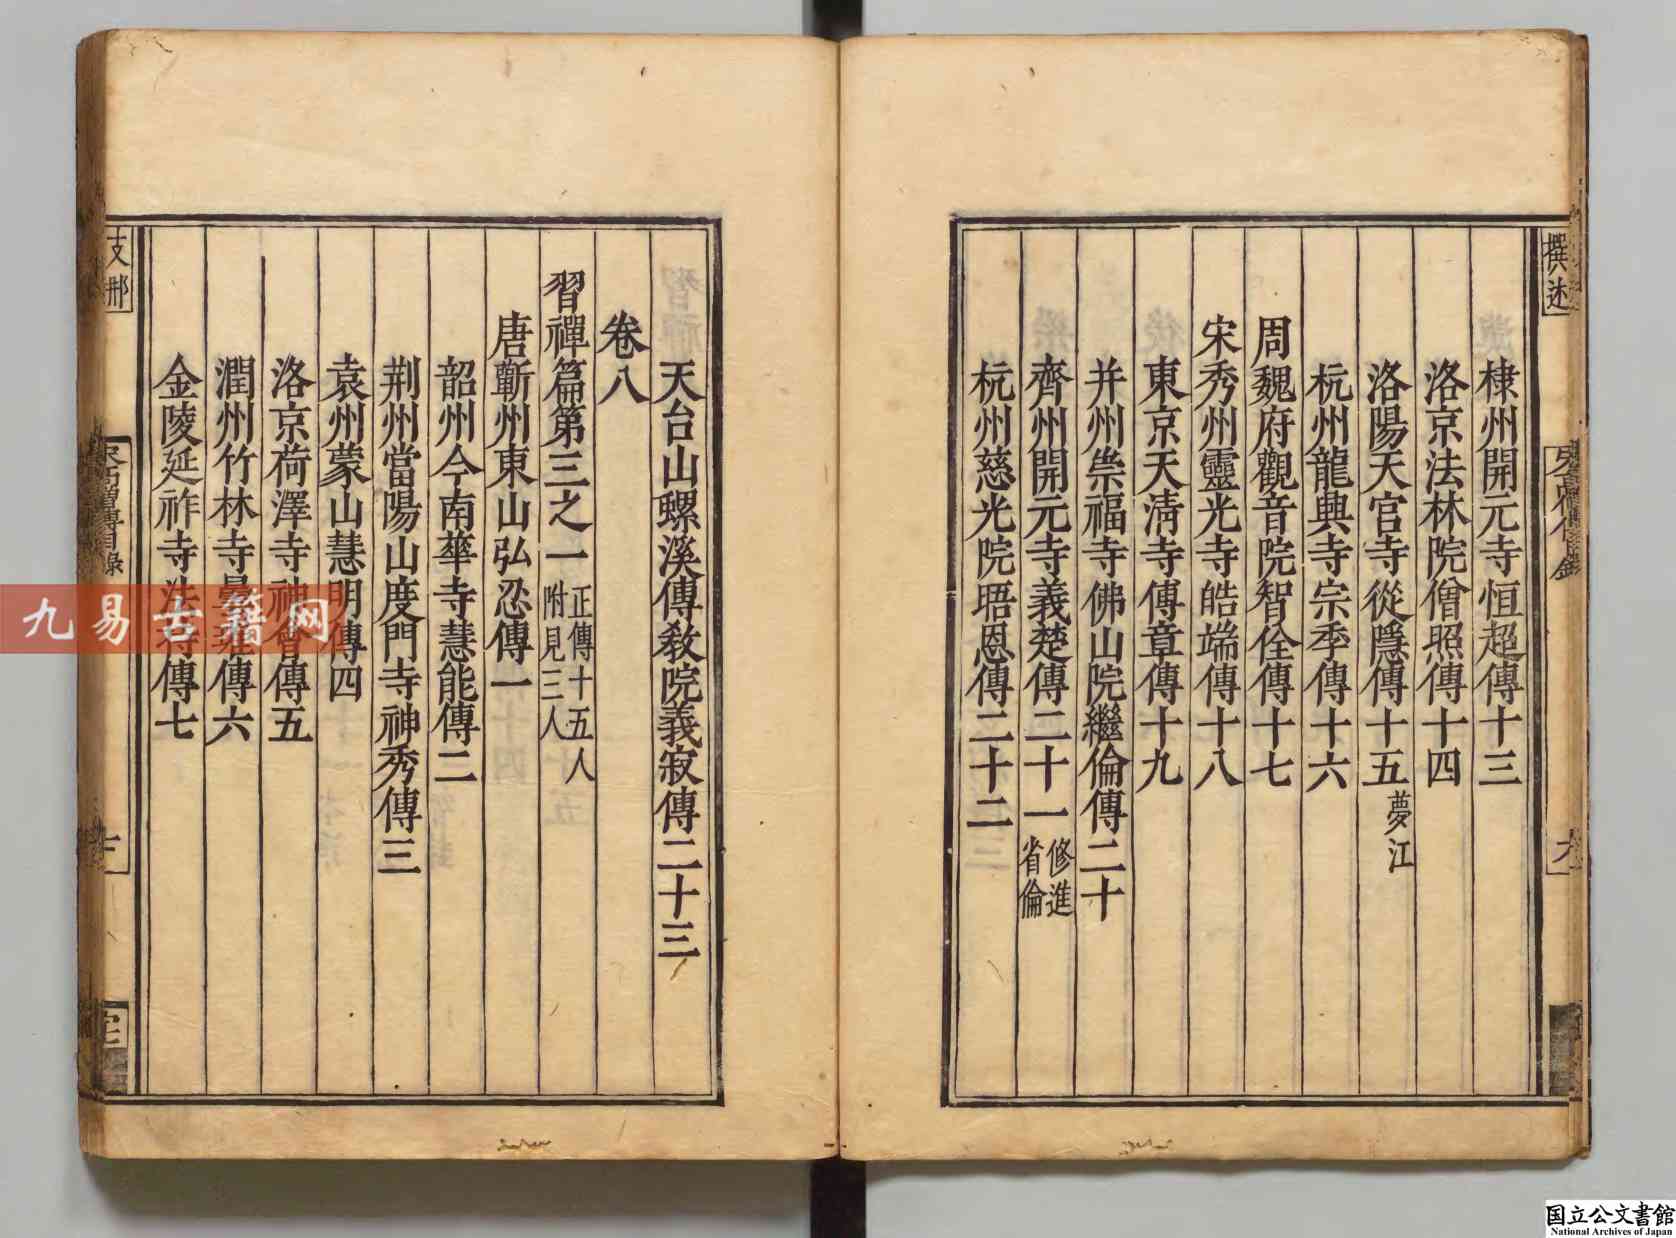 撰述
棣州開元寺恒超傳十三
洛京法林院僧照傳十四
洛陽天宮寺從隱傳十五 夢江
杭州龍興寺宗季傳十六
周魏府觀音院智佺傳十七
宋秀州靈光寺皓端傳十八
東京天清寺傳章傳十九
并州崇福寺佛山院繼倫傳二十
齊州開元寺義楚傳二十一 修進 省倫
杭州慈光院晤恩傳二十二
天台山螺溪傳教院義寂傳二十三
卷八
習禪篇第三之一 正傳十五人 附見三人
唐蘄州東山弘忍傳一
韶州今南華寺慧能傳二
荆州當陽山度門寺神秀傳三
袁州蒙山慧明傳四
洛京荷澤寺神會傳五
潤州竹林寺曇璀傳六
金陵延祚寺法持傳七
支那
宋高僧傳目錄
九易古籍网
国立公文書館
National Archives of Japan